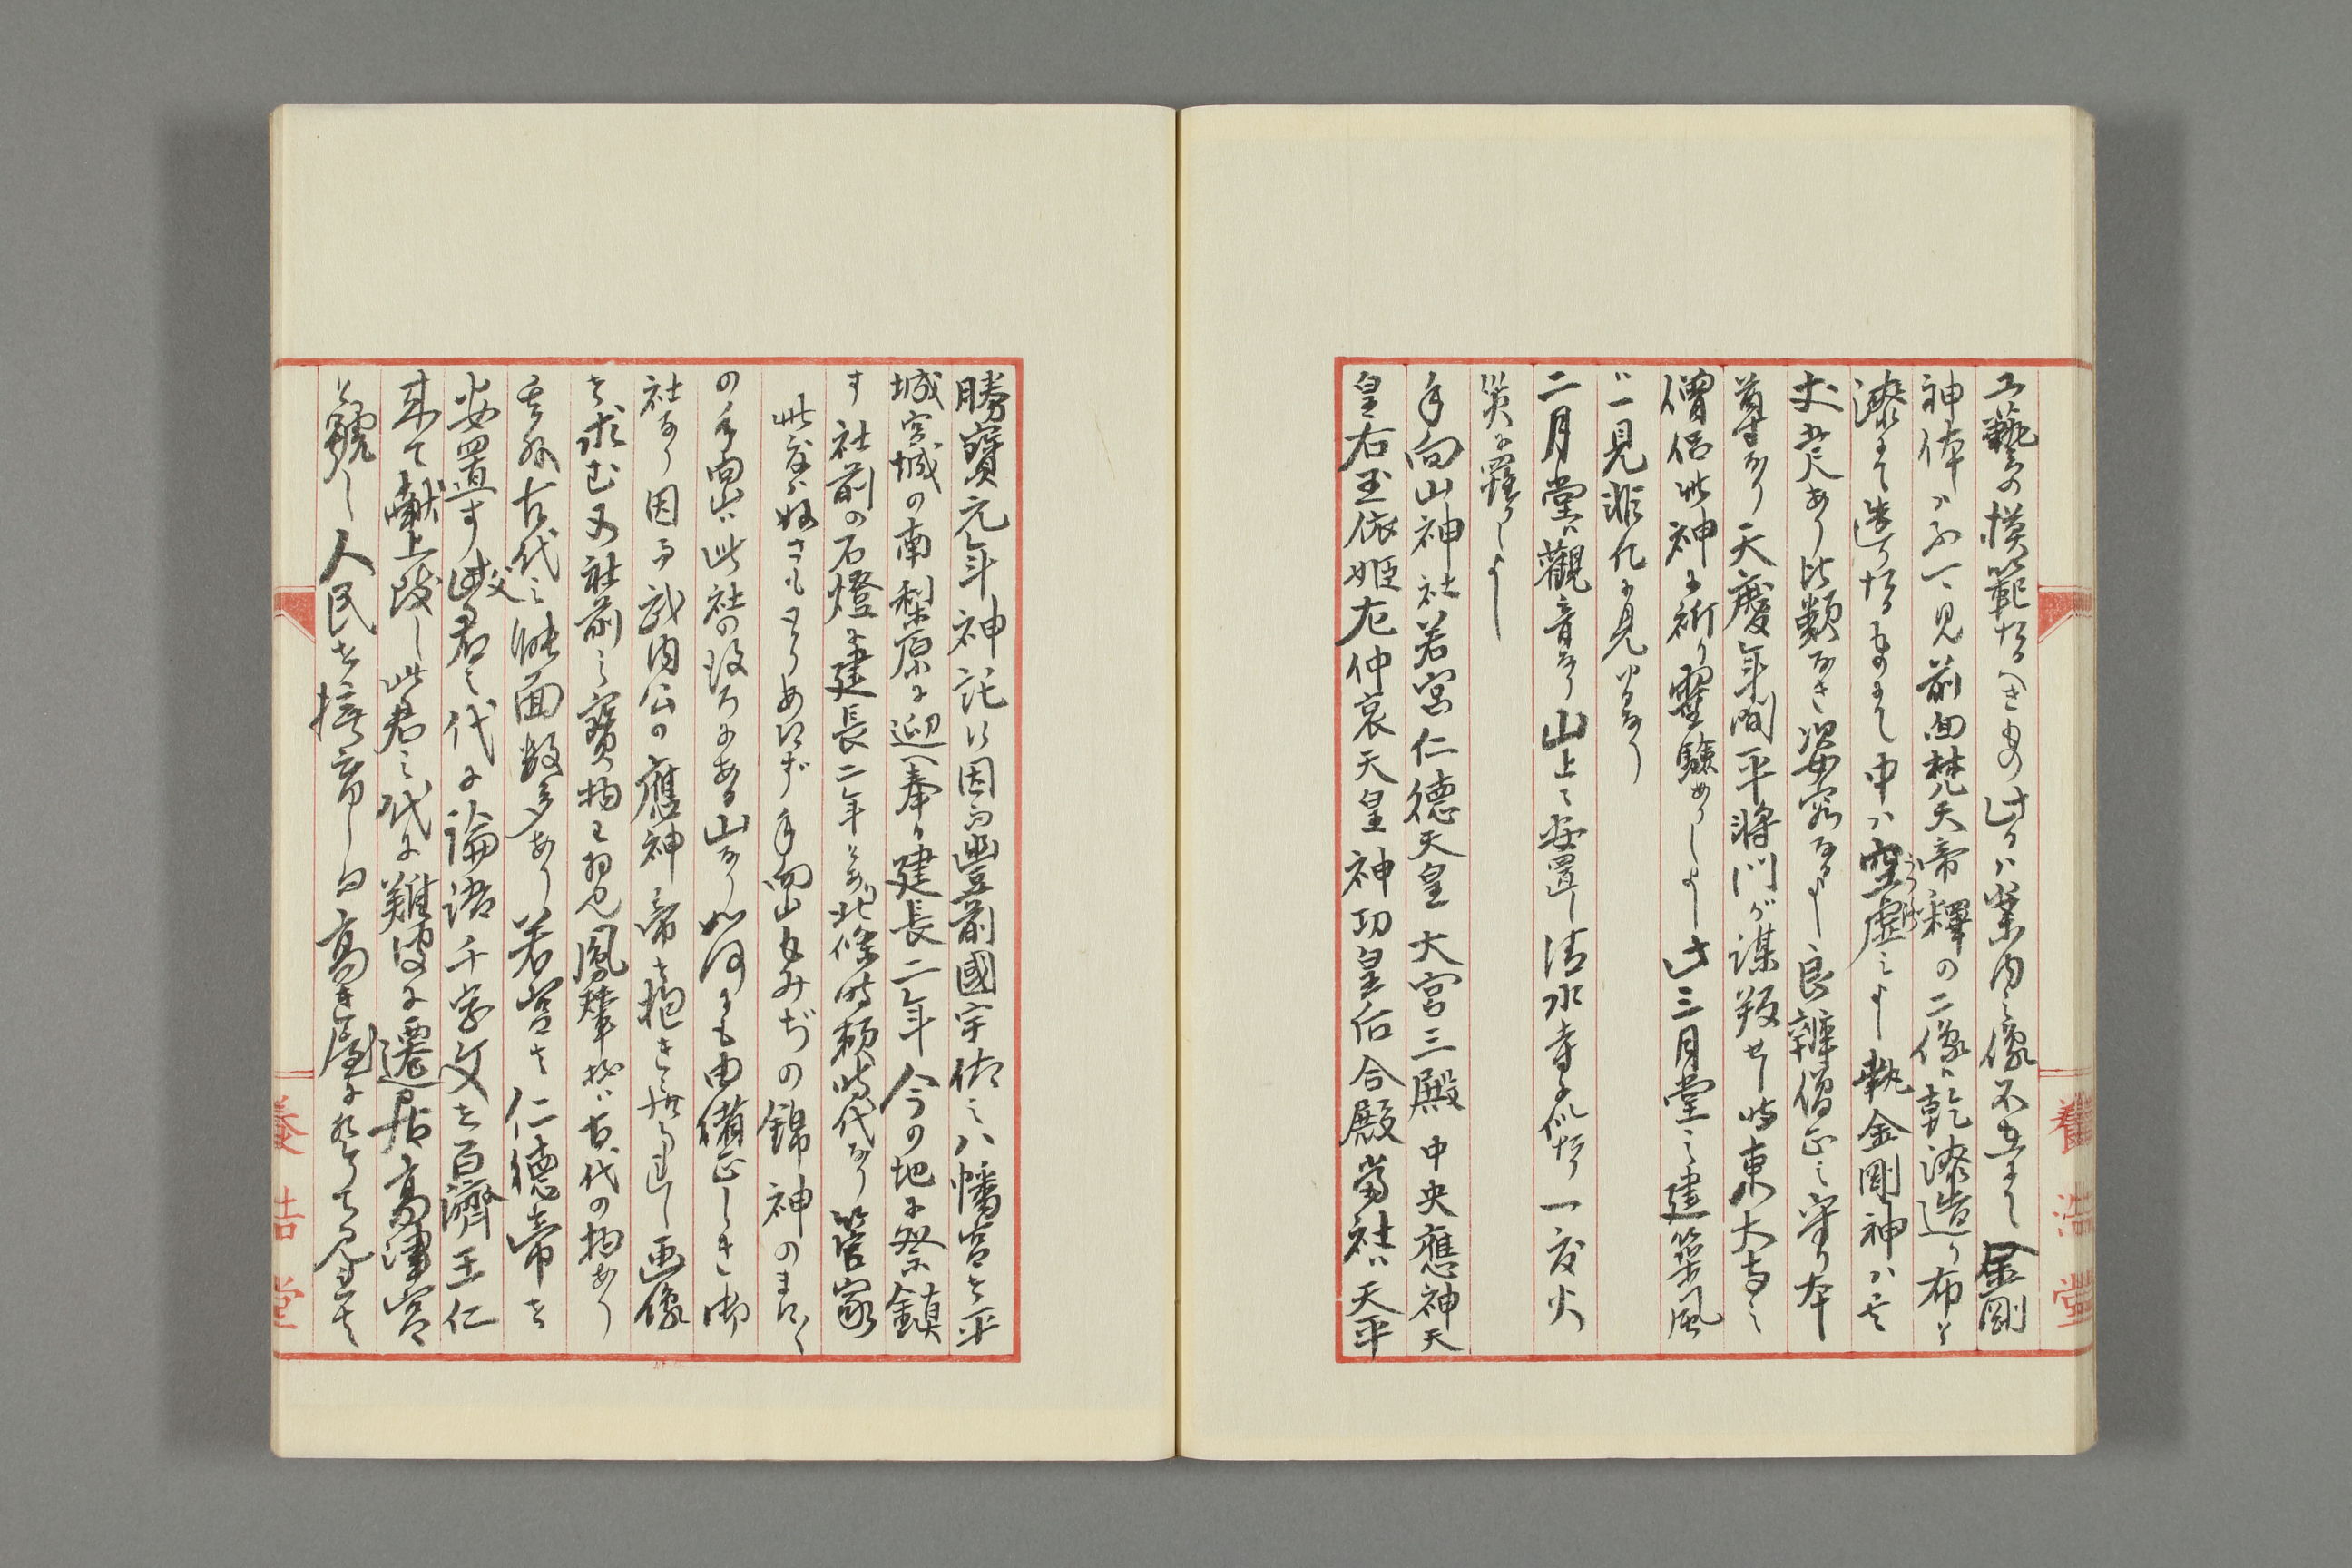 工藝の模範たるへきもの此ハ案内之像不在まて金剛
神体ハふ一見前面梵天帝釋の二像ハ乾漆造り布と
漆まて造りたるものまて中ハ空虚之よし執金剛神ハ
丈 あり比類なき姿容なるよし良辨僧正之守り本
尊なり天慶年間平将門が謀叛せし時東大寺之
僧侶此神に祈り靈驗ありしよし此三月堂之建築風
ハ一見非凡に見
二月堂ハ觀音なり山上ニ安置し清水寺に似たり一度火
災に羅りしよし
手向山神社若宮仁德天皇大宮三殿中央應神天
皇右玉依姫左仲哀天皇神功皇后合殿當社ハ天平
勝寶元年神託に因而豊前國宇佐之八幡宮を平
城宮城の南梨原に迎へ奉り建長二年今の地に祭鎮
す社前の石燈に建長二年とあり北條時頼時代なり菅家
此度ハぬさもとりあへず手向山もみぢの錦神のまにく
の手向山ハ此社の後ろにある山なり如何にも由緒正しき御
社なり因而武内公の應神帝を抱き 画像
を求む又社前之寶物を拝見鳳輦 古代の物あり
其外古代之 面数多あり若宮は仁德帝を
安置す父君之代に論語千字文を百濟王仁
来て献上 し此君之代に難波に遷居高津宮
と號し人民を撫育し曰高き屋に登りて見れは
養浩堂
養浩堂